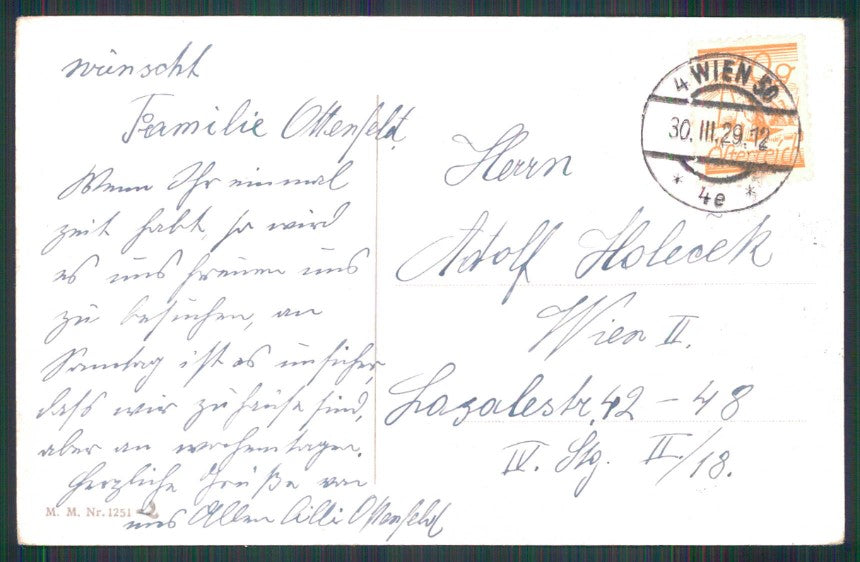 wünscht
Familie Ottenfeld.
Wenn Ihr einmal
zeit habt, so wird
es uns freuen uns
zu besuchen, an
Sonntag ist es unsicher,
dass wir zuhause sind,
aber an wochentagen.
Herzliche Grüße von
uns Allen Cilli Ottenfeld
M. M. Nr. 1251
4 WIEN 50
30. III. 29. 12
* 4e *
Österreich
Herrn
Adolf Holecek
Wien II.
Lazalestr. 42 – 48
IV. Stg. II/18.